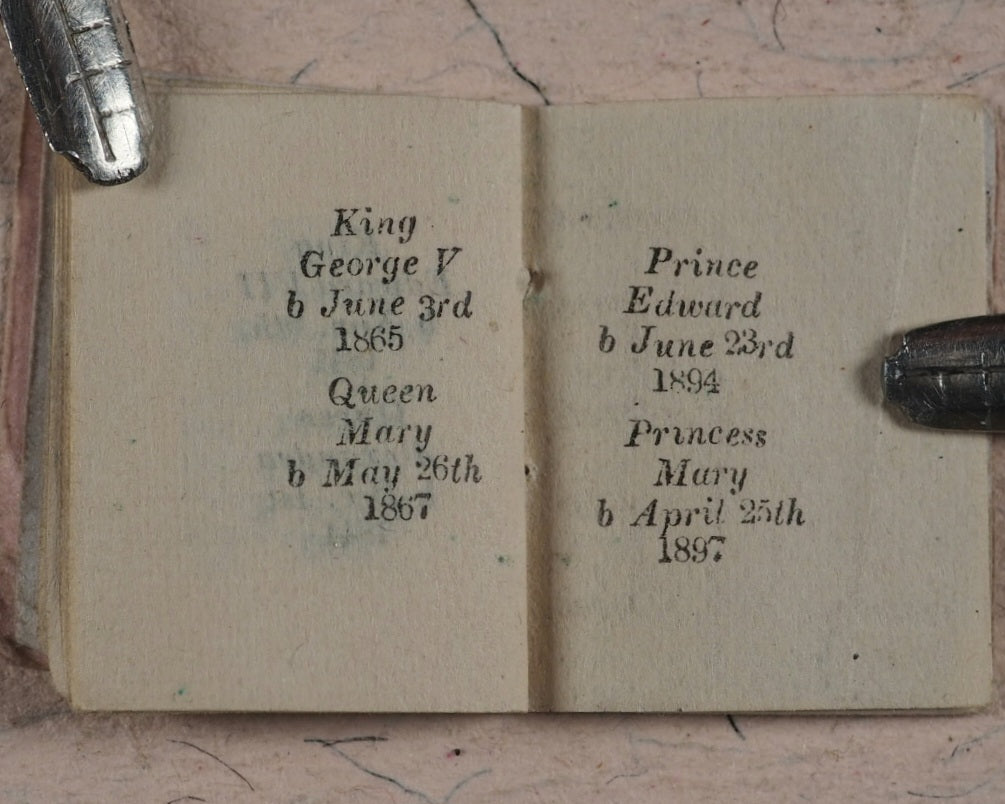 King
George V
b June 3rd
1865
Queen
Mary
b May 26th
1867
Prince
Edward
b June 23rd
1894
Princess
Mary
b April 25th
1897